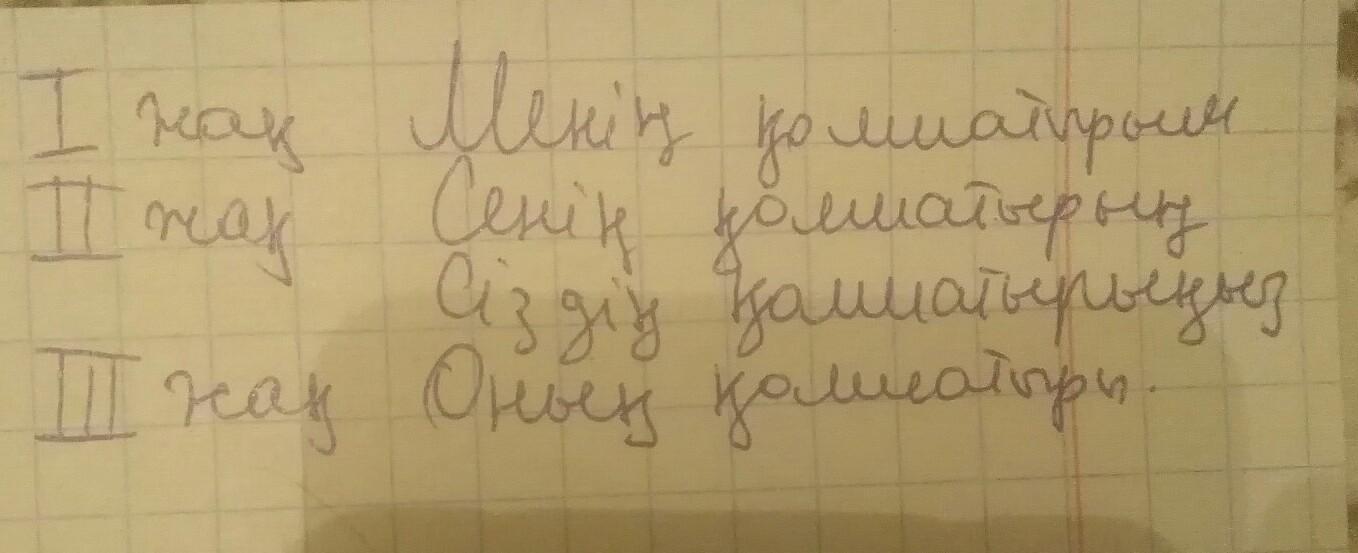 I жақ Менің қолшатрым
II жақ Сенің қолшатырың
Сіздің қолшатырыңыз
III жақ Оның қолшатыры.